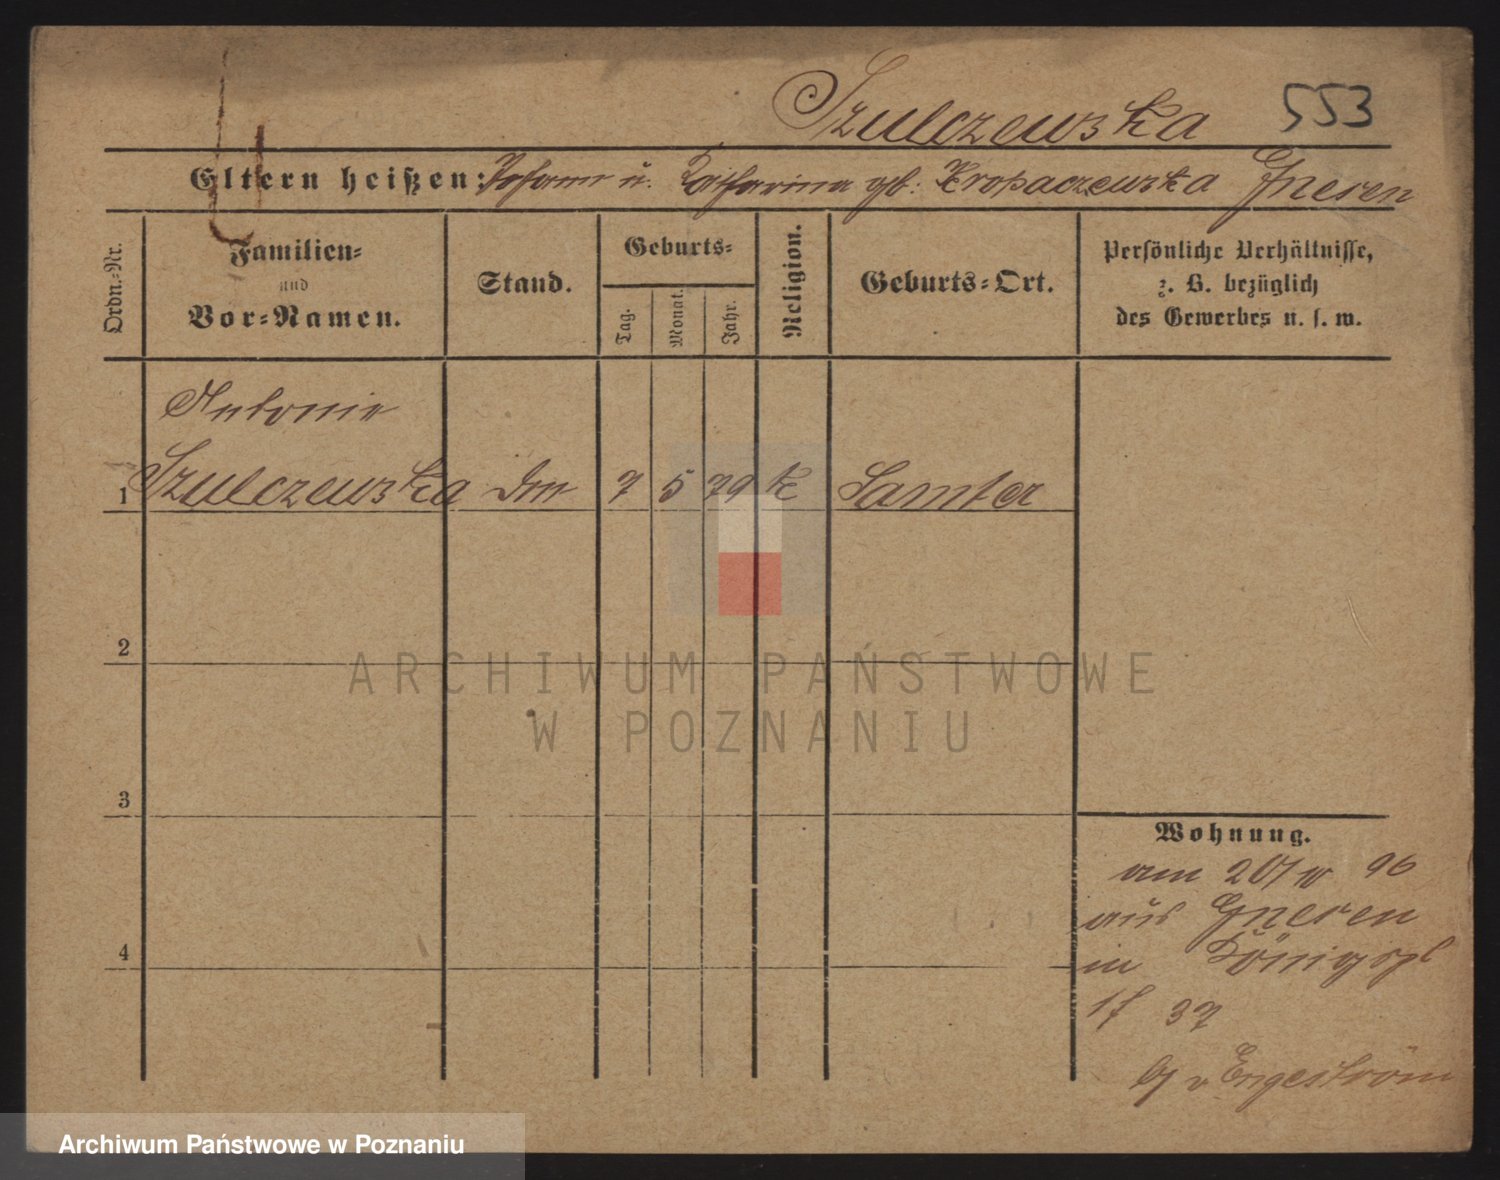 Szulczewska 553
Eltern heißen: Johann u. Katharina gb: Kropaczewska Gneren
Ordn.-Nr.
Familien- und Vor-Namen.
Stand.
Geburts-
Tag.
Monat.
Jahr.
Religion.
Geburts-Ort.
Persönliche Verhältnisse,
z. B. bezüglich
des Gewerbes u. s. w.
Antonie
1 Szulczewska 7 5 79 k Samter
2
3
4
Wohnung.
am 96
aus Gneren
in Königspl
37
v Engeström
ARCHIWUM PAŃSTWOWE
W POZNANIU
Archiwum Państwowe w Poznaniu